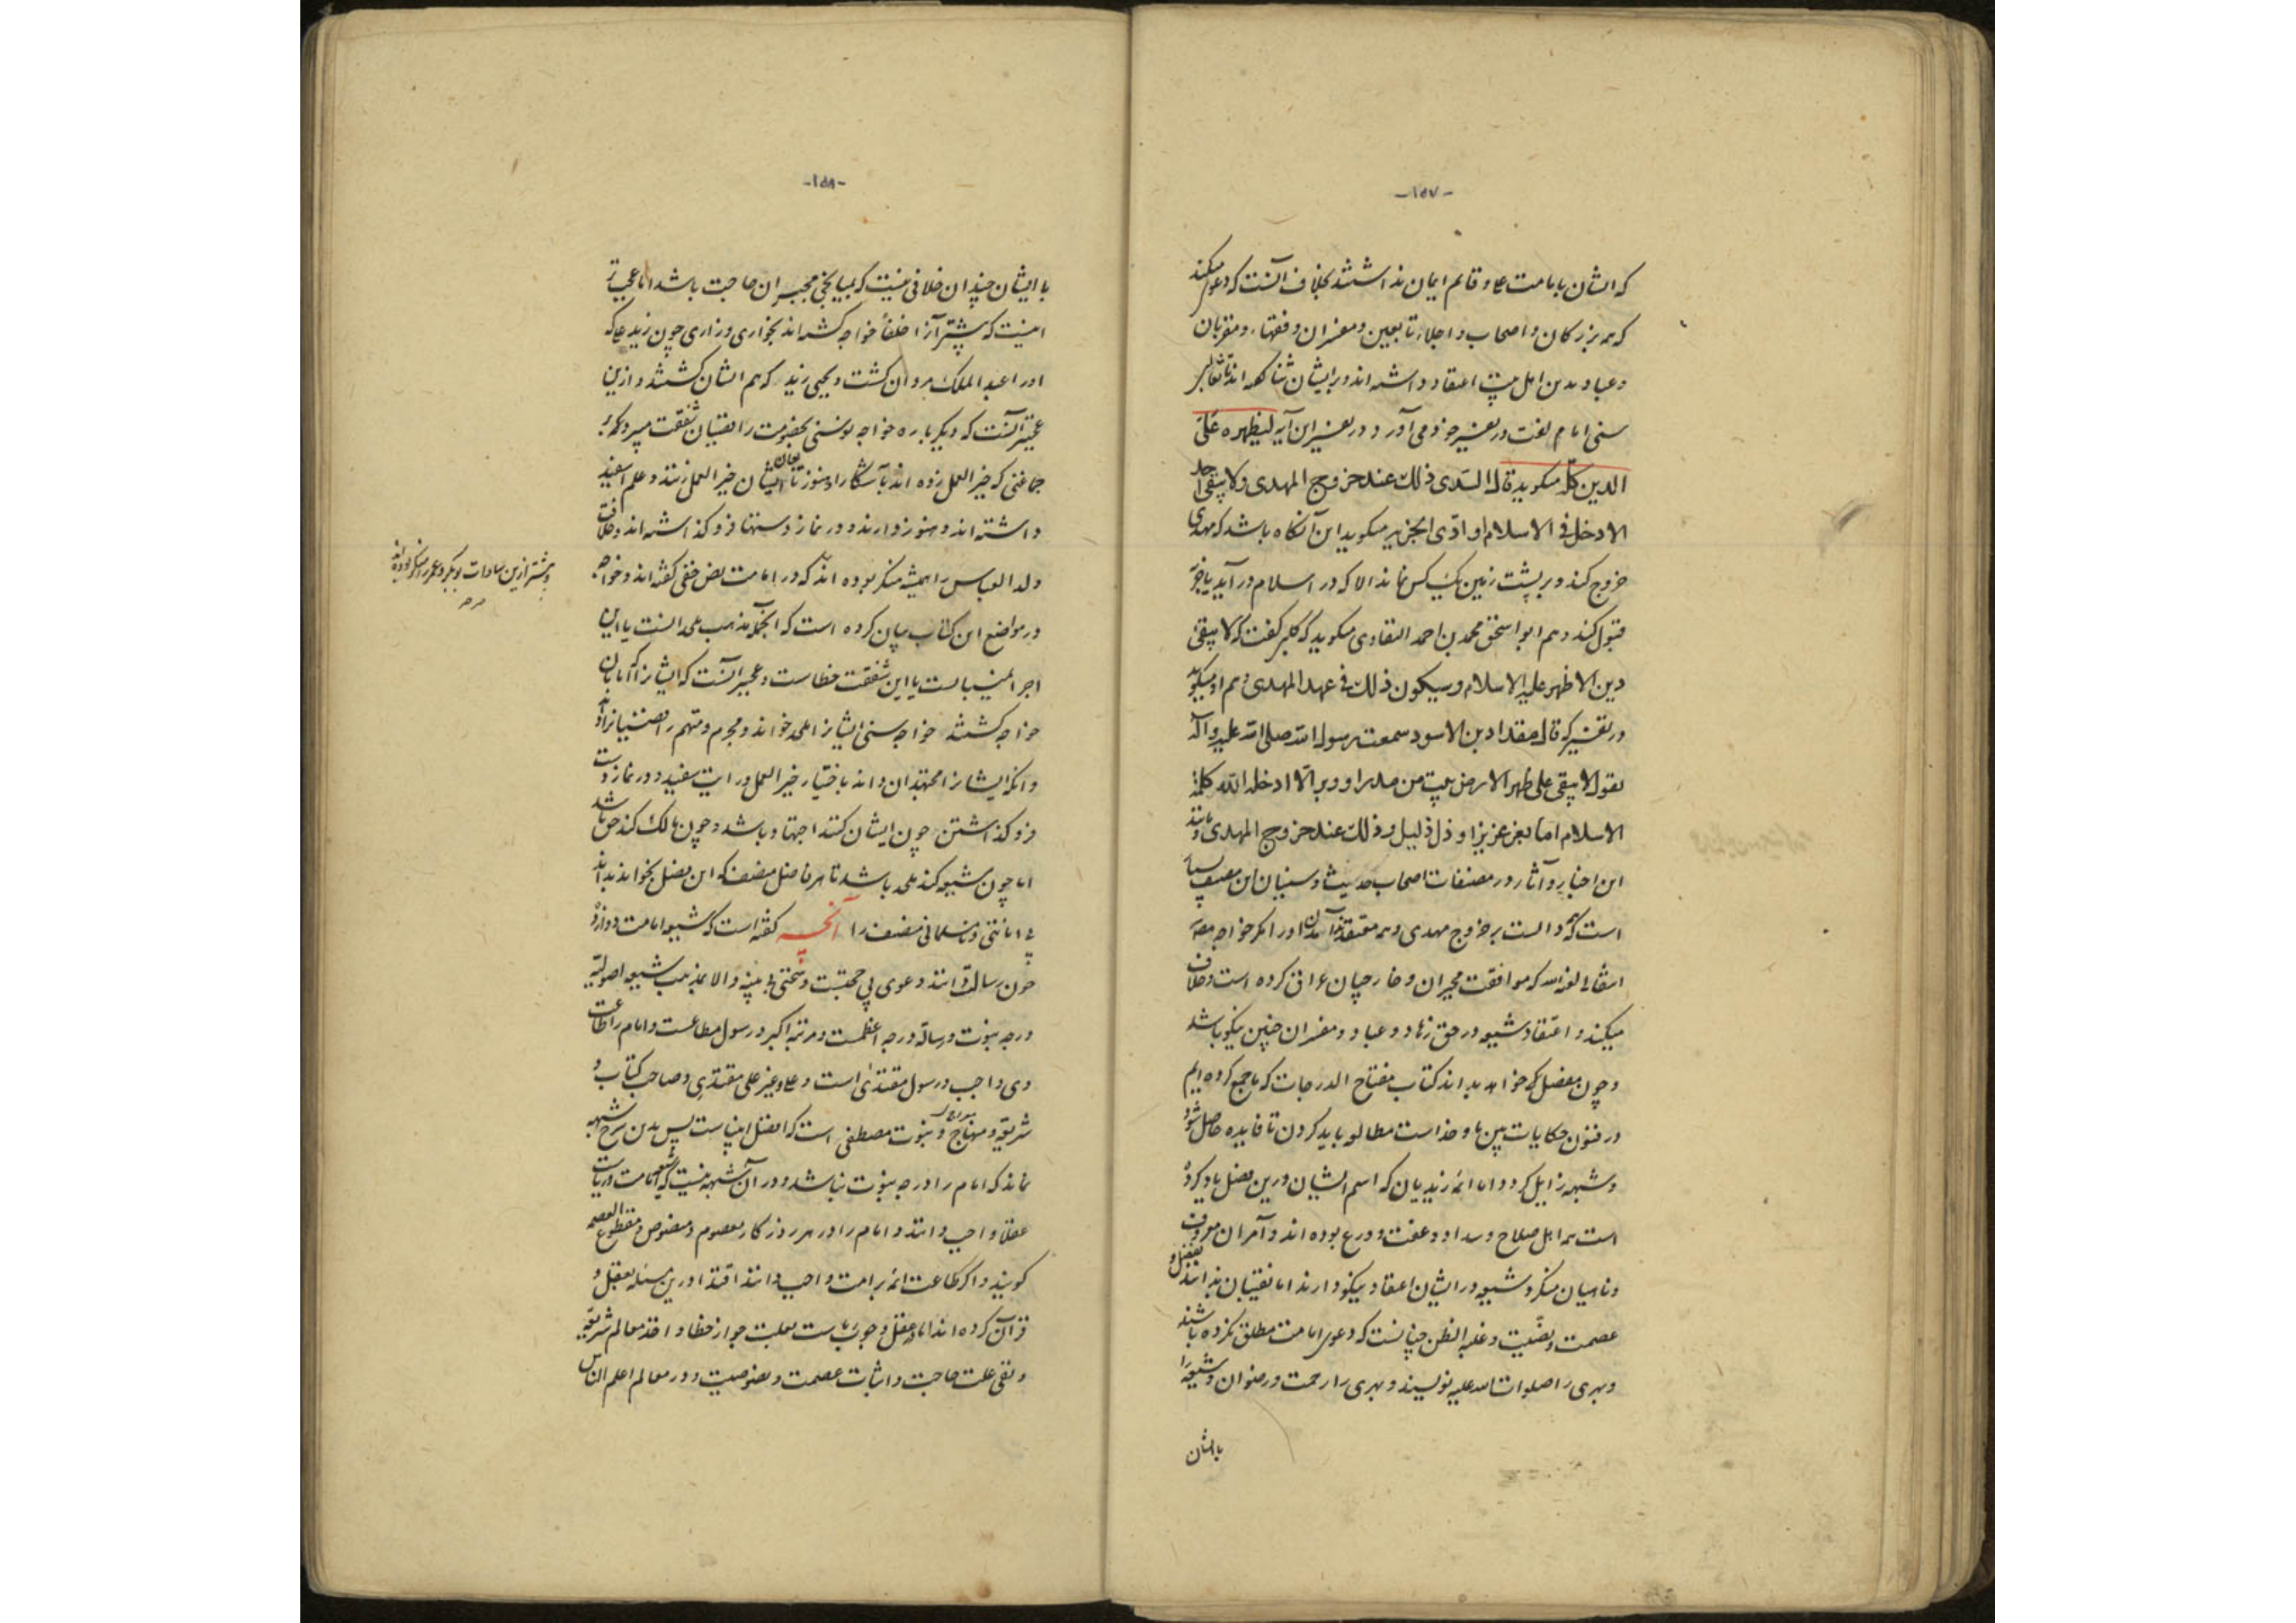 -۱۵۷-
که ایشان بامامت علی و قائم ایمان نداشتند بخلاف آنست که دعوی میکند
که همه بزرگان و اصحاب و اجلاء تابعین و مفسران و فقهاء و مقریان
و عباد بدین اهل بیت اعتقاد داشته اند و بر ایشان ثنا گفته اند تا ثعالبی
سنی امام لغت در تفسیر خود می آورد در تفسیر این آیه لیظهره علی
الدین کله میگوید قال السّدی ذلک عند خروج المهدی ولا یبقی احد
الا دخل فی الاسلام او ادّی الجزیه میگوید این آنگاه باشد که مهدی
خروج کند و بر پشت زمین یک کس نماند الا که در اسلام در آید یا جزیه
قبول کند و هم ابو اسحق محمد بن احمد میگوید که کلبی گفت که لا یبقی
دین الا ظهر علیه الاسلام و سیکون ذلک فی عهد المهدی و هم او میگوید
در تفسیر که قال مقداد بن الاسود سمعت رسول الله صلی الله علیه و آله
یقول لا یبقی علی ظهر الارض بیت من مدر او وبر الّا ادخله الله کلمة
الاسلام اما بعز عزیز او ذل ذلیل و ذلک عند خروج المهدی و مانند
این اخبار و آثار در مصنفات اصحاب حدیث و سنیان این مصنف بسیار
است که همه دالست بر خروج مهدی و همه معتقدند آمدن او را مگر خواجه
انتقالی لعنه الله که موافقت مجبران و خارجیان عراق کرده است و خلاف
میکند و اعتقاد شیعه در حق زهاد و عباد و مفسران چنین نیکو باشد
و چون مفصل که خواهد بداند کتاب مفتاح الدرجات که ما جمع کرده ایم
در فنون حکایات مطالعه باید کردن تا فایده حاصل شود
و شبهه زایل گردد و اما ائمه زیدیان که اسم ایشان درین فصل یاد کرده
است همه اهل صلاح و سداد و عفت و ورع بوده اند و آمران معروف
و ناهیان منکر و شیعه در ایشان اعتقاد نیکو دارند اما نقیبان ندانند بفضل و
عصمت و نصّیت و غلبه الظن چنانست که دعوی امامت مطلق نکرده باشند
و بهری را صلوات الله علیه نویسند و بهری را رحمت و رضوان و شیعه را
بایشان
-۱۵۸-
با ایشان چندان خلافی نیست که بمیانجی مجبران حاجت باشد اما عجب تر
اینست که پیشتر آنرا خلفاء خواجه کشته اند بخواری و زاری چون زید علی که
او را عبد الملک مروان کشت و یحیی زید که هم ایشان کشتند و ازین
عجبتر آنست که دیگر باره خواجه نوسنی بخصومت رافضیان شفقت میبرد که بر
جماعتی که خیر العمل زده اند بآشکارا و هنوز تابعان ایشان خیر العمل زنند و علم سفید
داشته اند و هنوز دارند و در نماز دستها فرو گذاشته اند و خلافت
ولد العباس را همیشه منکر بوده اند که در امامت نص خفی گفته اند و خواجه
در مواضع این کتاب بیان کرده است که اینجمله مذهب ملحدانست یا این
اجرا نمی بایست یا این شفقت خطاست و عجبتر آنست که ایشانرا که امامان
خواجه کشتند خواجه سنی ایشانرا ملحد خواند و مجرم و متهم رافضیانرا داند
و آنکه ایشانرا مجتهدان داند باختیار خیر العمل و رایت سفید و در نماز دست
فرو گذاشتن چون ایشان کنند اجتهاد باشد و چون مالک کند حق باشد
اما چون شیعه کند ملحد باشد تا هر فاضل منصف که این فصل بخواند بداند
بی امانتی و نامسلمانی مصنف را آنچه گفته است که شیعه امامت دوازده
چون رسالت دانند دعوی بی حجتست و سختی بی بینه و الا بمذهب شیعه اصولیه
درجه نبوت و رسالة درجه اعظمست و مرتبه اکبر و رسول مطاعست و امام را طاعت
وی واجب و رسول مقتدیٰ است و علی و غیر علی مقتدی و صاحب کتاب و
شریعة و منهاج و نبوت مصطفی است که افضل انبیاست پس بدین شرح شبهه
نماند که امام را درجه نبوت نباشد و در آن شبهه نیست که شیعه امامت و ریاست
عقلاً واجب دانند و امام را در هر روزگار معصوم و منصوص و مقطوع العصمه
گویند و اگر طاعت ائمه بر امت واجب دانند اقتدا درین مسئله بعقل و
قرآن کرده اند اما در عقل وجوب ریاست بعلت جواز خطا و اخذ معالم شریعة
و نفی علت حاجت و اثبات عصمت و نصوصیت و در معالم اعلم الناس
و بیشتر ازین سادات بوبکر و عمر را منکر بوده اند